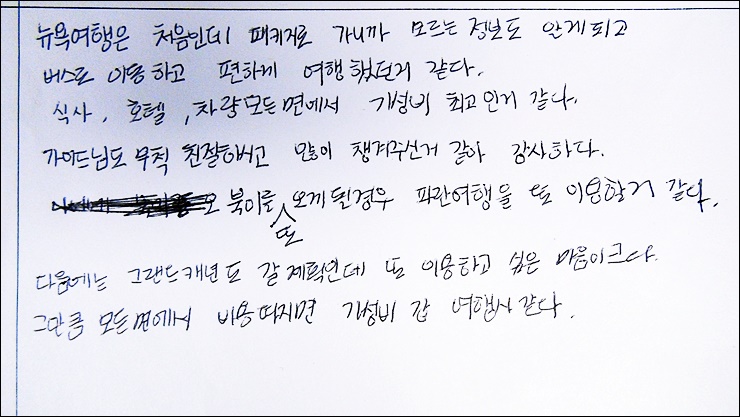 뉴욕여행은 처음인데 패키지로 가니까 모르는 정보도 알게되고
버스로 이동하고 편하게 여행했던거 같다.
식사, 호텔, 차량모든면에서 가성비 최고인거 같다.
가이드님도 무척 친절하시고 많이 챙겨주신거 같아 감사하다.
북미를 또 오게될경우 파란여행을 또 이용할거 같다.
다음에는 그랜드캐년도 갈계획인데 또 이용하고 싶은 마음이크다.
그만큼 모든면에서 비용따지면 가성비 갑 여행사같다.